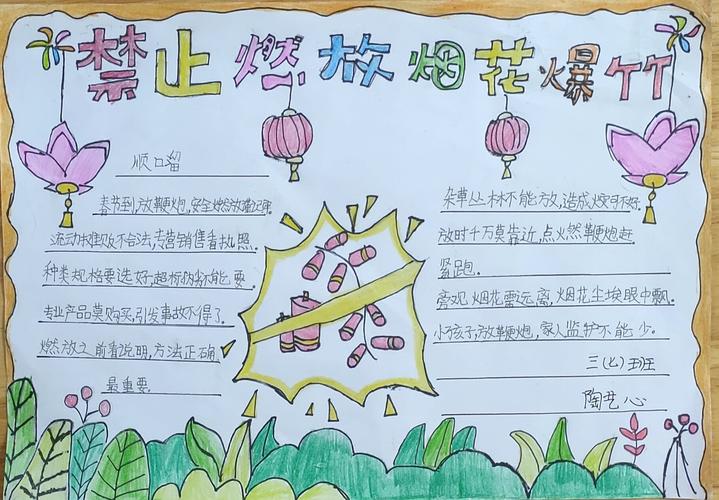 禁止燃放烟花爆竹
顺口溜
春节到,放鞭炮,安全燃放难记牢
流动摊贩不合法,专营销售看执照.
种类规格要选好,超标钠标不能要
专业产品莫购买,引发事故不得了.
燃放之前看说明,方法正确
最重要
杂草丛林不能放,造成火灾可不好.
放时千万莫靠近,点火燃鞭炮赶
紧跑.
旁观烟花需远离,烟花尘埃眼中飘.
小孩子放鞭炮,家人监护不能少.
三(七)班
陶艺心